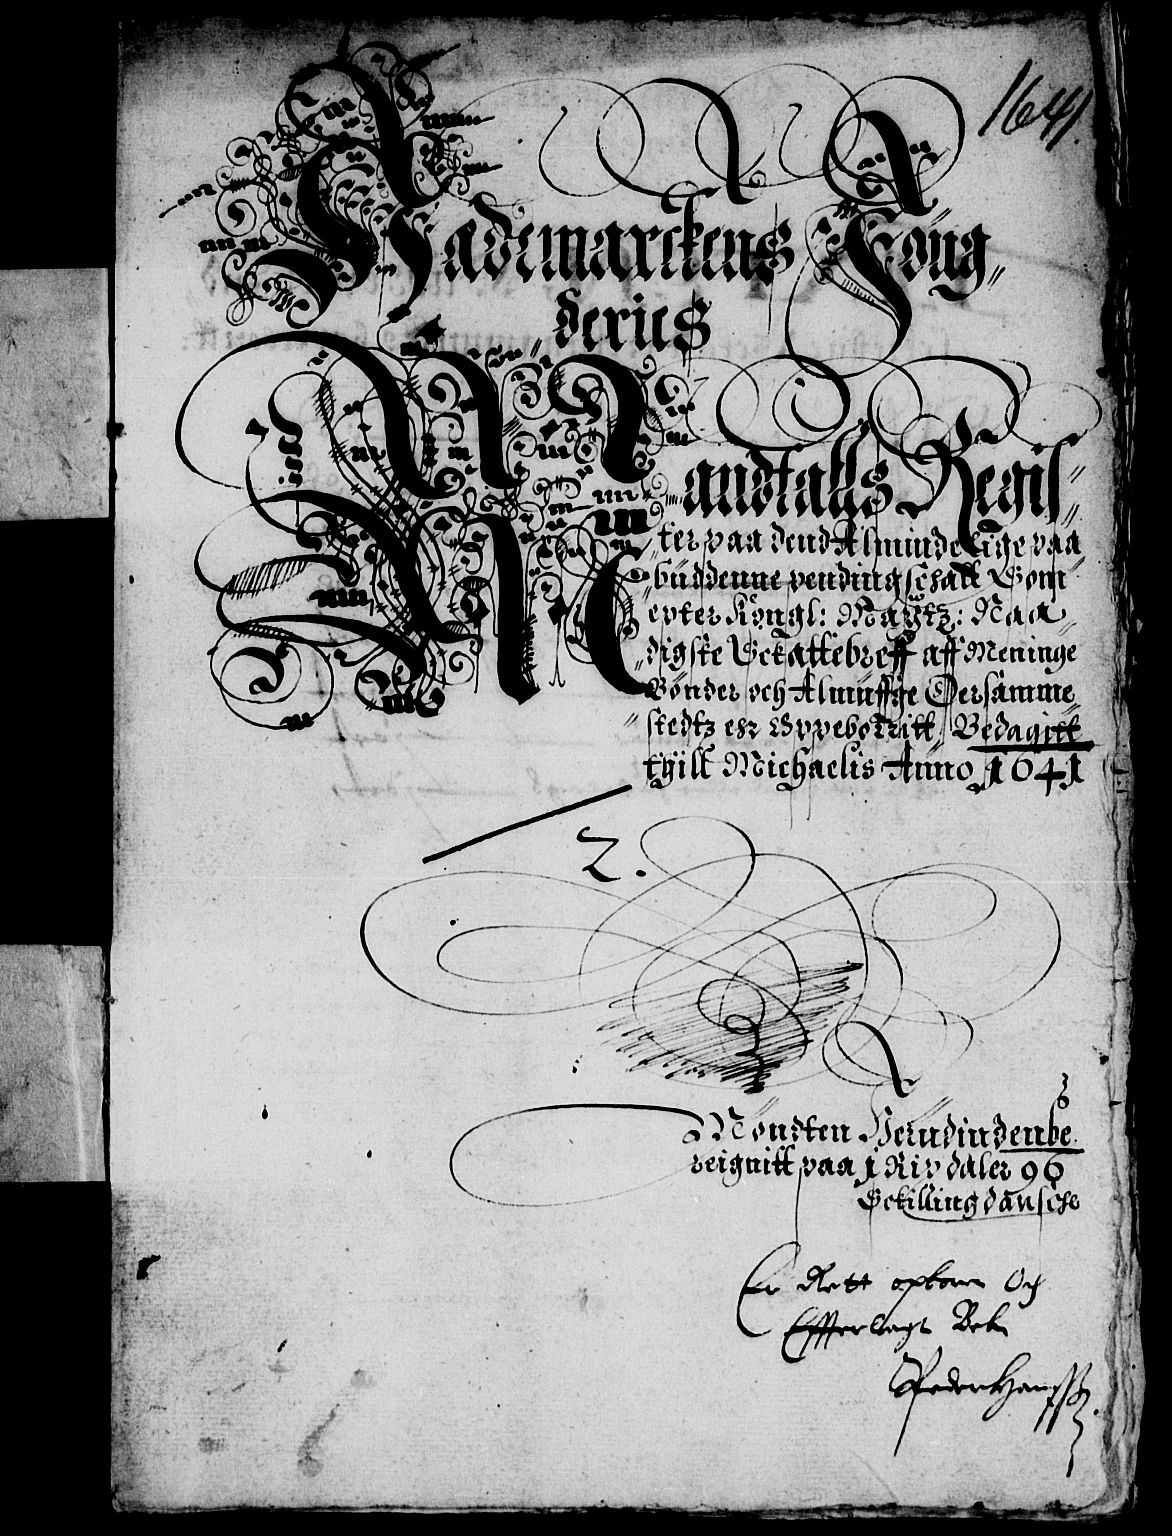 1641.
Hademarckens Foug„
deries
Mandtalls Regis„
ter paa dend Almindelige paa
büddenne pending schatt Som
epter Kongl: Maÿtz: Naa„
digste Sckattebreff aff Meninge
Bönder och Almuffge Dersamme„
stedtz ehr Oppebörritt, Bedagitt
thill Michaelis Anno 1641
2.
Möndten Herudinden be„
reignitt paa j Rix daler 96
Sckilling dansche
Er Rett opboren Och
Effterlagt Bek
Peder Hanssß.